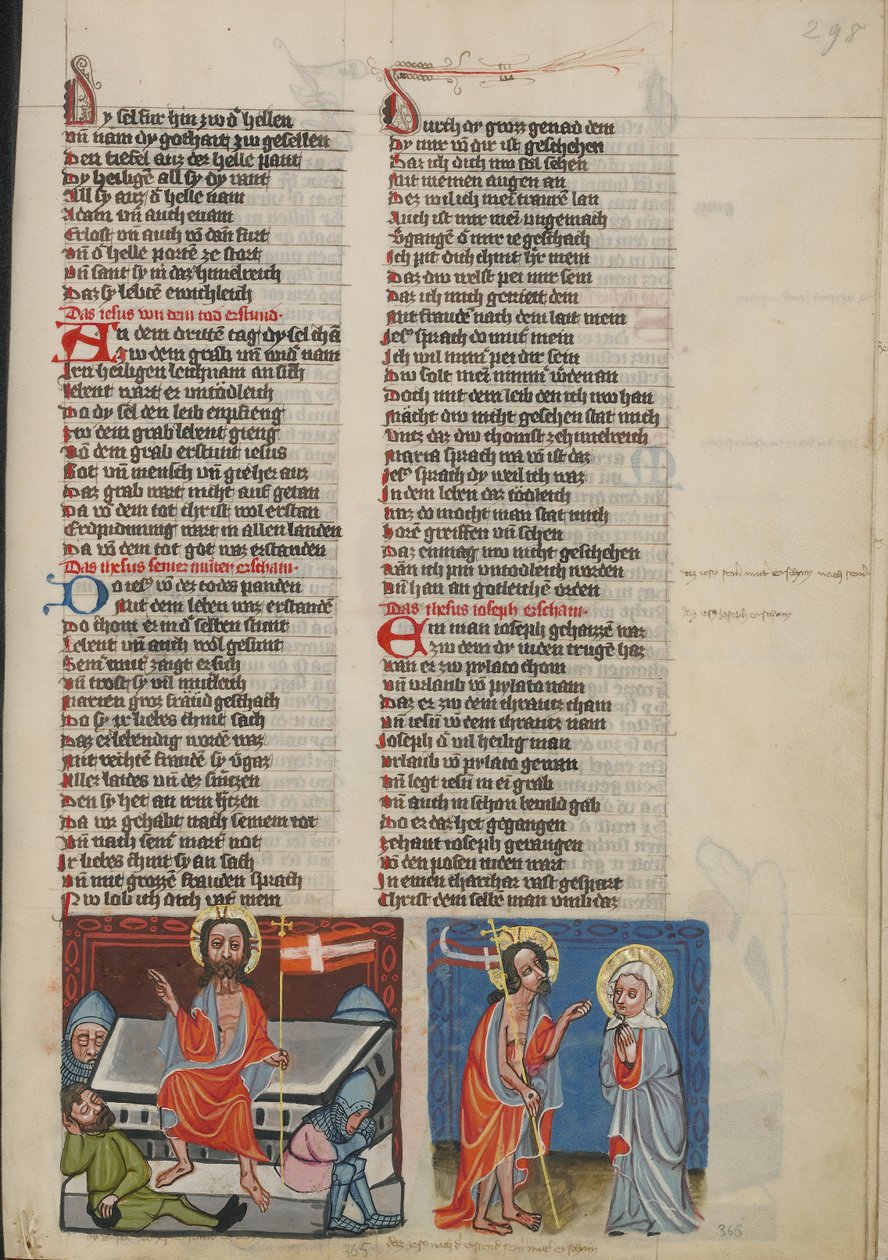 298
Dy sel fur hin zw d̄ hellen
vn̄ nam dy gothait zw gesellen
Den tiefel auz der helle pant
Dy heiligē all sy dy vant
All sy auz d̄ helle nam
Adam vn̄ auch euam
Erlost vn̄ auch vō dan̄ furt
vn̄ d̄ helle portē ze stort
vn̄ sant sy in daz himelreich
Daz sy lebtē ewichleich
Das iesus von dem tod erstund.
An dem drittē tag dy sel chā
Zw dem grab vn̄ wid̄ nam
Irn heiligen leichnam an sich
lebent wart er vntödleich
Do dy sel den leib enpfieng
Zw dem grab lebent gieng
Vō dem grab erstunt iesus
Got vn̄ mensch vn̄ gie her auz
Daz grab wart nicht auf getan
Da vō dem tot christ wol erstan
Erdpidmung wart in allen landen
Da vō dem tot got waz erstanden
Das ihesus seiner müter erscham.
Do iesꝰ vō der todes panden
Mit dem leben waz erstandē
Do chom er in d̄ selben stunt
Lebent vn̄ auch wol gesunt
Seinˀ mutˀ zaigt er sich
vn̄ trost sy vil mütleich
Marien groz fraud geschach
Do sy ir liebes chint sach
Daz er lebendig wordē waz
Mit rechtē fraudē sy vˀgaz
Aller laides vn̄ der smitzen
Den sy het an irm hˀtzen
Da vor gehabt nach seinem tot
Vn̄ nach seinˀ martˀ not
Ir liebes chint sy an sach
vn̄ mit grozzē frauden sprach
Zw lob ich dich vatˀ mein
Durch dy groz genad dein
Dy mir vō dir ist geschehen
Daz ich dich nw sol sehen
Mit meinen augen an
Dez wil ich mein trauren lan
Auch ist mir mein vngemach
Vˀgangē d̄ mir ie geschach
Ich pit dich chint hˀr mein
Daz dw welst pei mir sein
Daz ich mich geniett dein
Mit fraudē nach dem lait mein
Jesꝰ sprach do mutˀ mein
Ich wil nimˀ pei dir sein
Dw solt mein nimmˀ wˀden an
Doch mit dem leib den ich nw han
Macht dw nicht gesehen stat mich
Vntz daz dw chomst ze himelreich
Maria sprach wa vō ist daz
Jesꝰ sprach dy weil ich waz
In dem leben daz tödleich
waz do mocht man stat mich
horē greiffen vn̄ sehen
Daz enmag nw nicht geschehen
wan ich pin vntödleich worden
Vn̄ han an götleiche orden
Das ihesus ioseph erscham.
Ein man ioseph gehaizzē waz
Zw dem dy iuden trugē haz
wan er zw pylato chom
vn̄ vrlaub vō pylato nam
Daz er zw dem chrautz cham
vn̄ iesū vō dem chrautz nam
Joseph d̄ vil heilig man
vrlaub vō pylato gewan
Vn̄ legt iesū in ei grab
Vn̄ auch in schon bewild gab
Do er daz het gegangen
Zehant ioseph gevangen
Vō den posen iuden wart
In einen charchar vast gespart
Christ dem selbē man vmb daz
daz iesꝰ seinˀ mutˀ erscham nach seinˀ
daz iesꝰ joseph erscham
365
365
daz jesꝰ nach dˀ erstend seinˀ mutˀ erscham